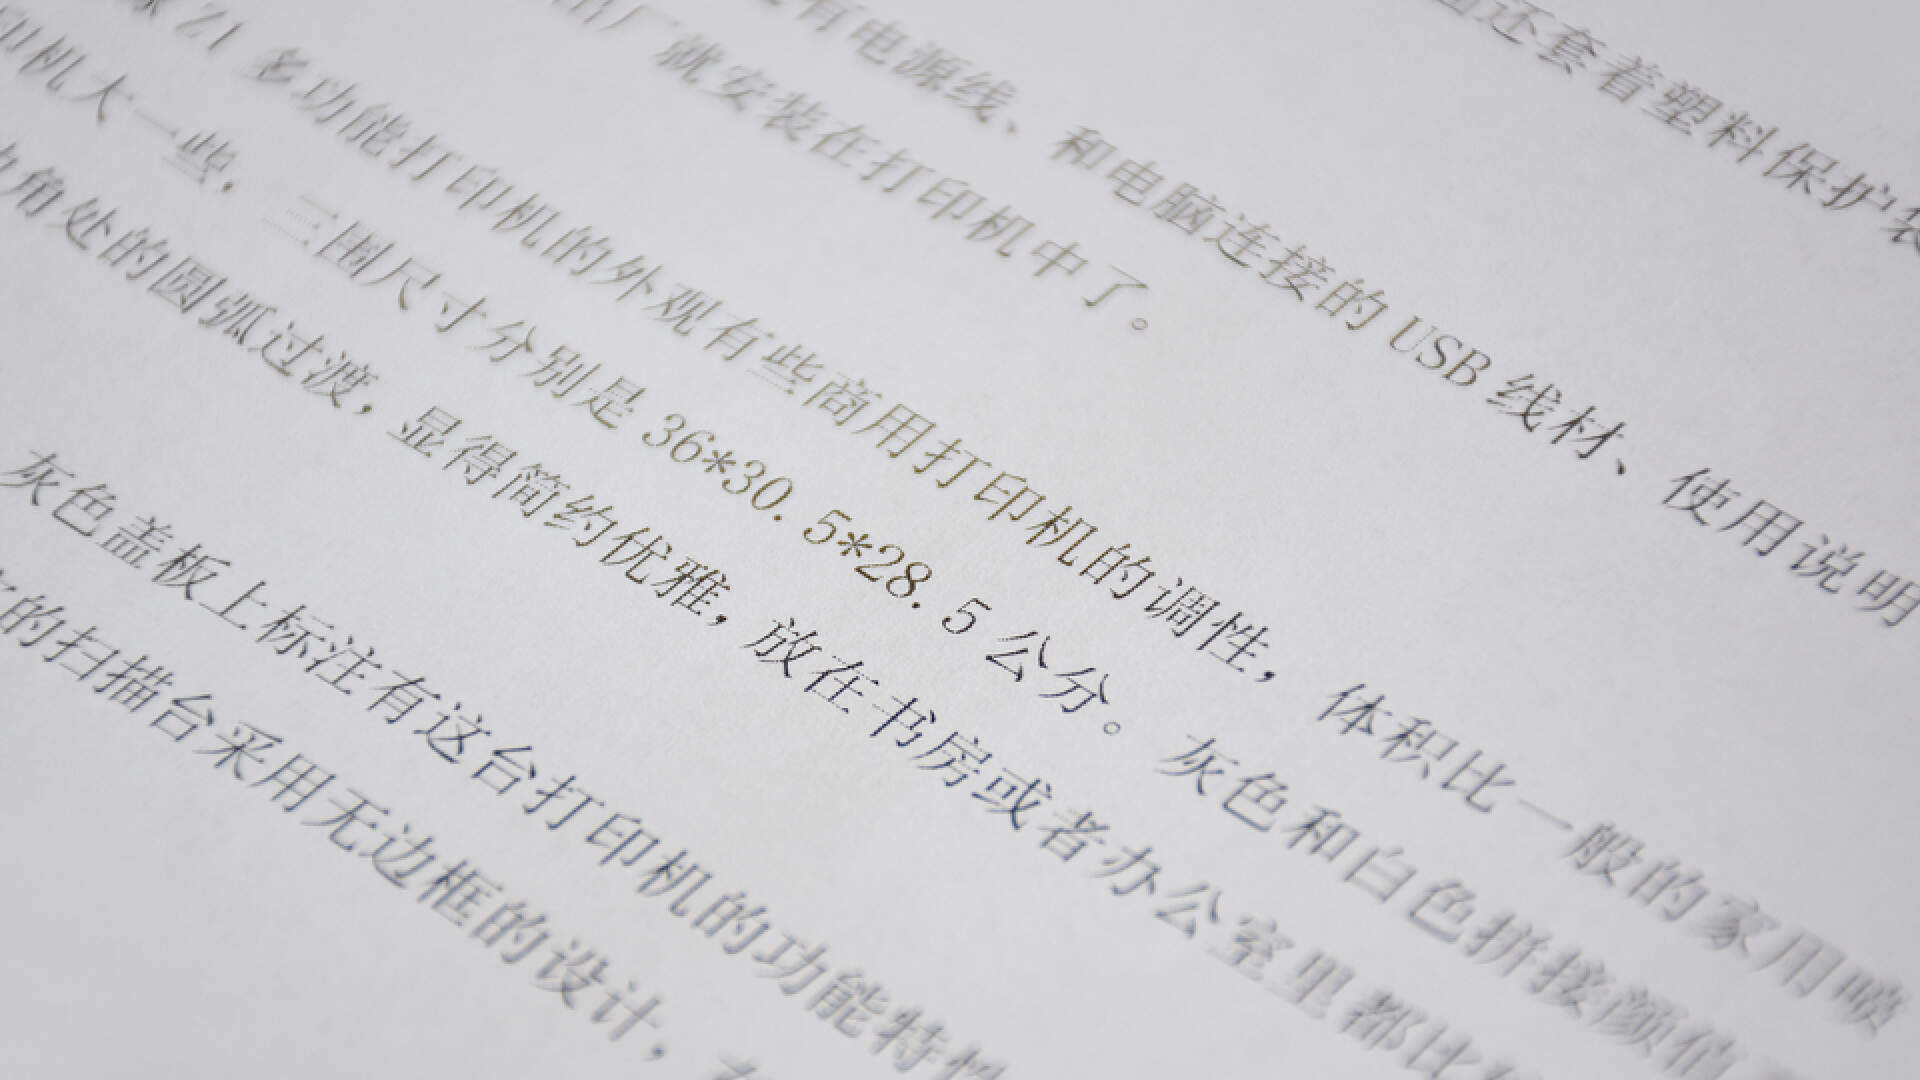 还套着塑料保护袋
有电源线、和电脑连接的 USB 线材、使用说明
出厂就安装在打印机中了。
Z1 多功能打印机的外观有些商用打印机的调性，体积比一般的家用喷
印机大一些，三围尺寸分别是 36*30.5*28.5 公分。灰色和白色拼接颜值
角处的圆弧过渡，显得简约优雅，放在书房或者办公室里都比
灰色盖板上标注有这台打印机的功能特性
的扫描台采用无边框的设计，